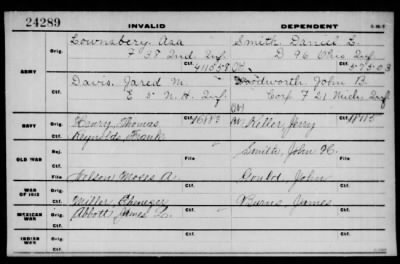 24289
INVALID
DEPENDENT
ARMY
Orig.
Lownsbery, Asa
Smith, Daniel L.
F 38 Ind. Inf.
D 96 Ohio Inf
Ctf.
411558
57503
Orig.
Davis, Jared M.
Woodworth John B.
E 5 N.H. Inf.
Corp F 21 Mich. Inf
Ctf.
NAVY
Orig.
Henry, Thomas
16183
Killer, Jerry
Ctf.
Reynolds, Frank
OLD WAR
Rej.
Smith, John H.
Ctf.
File
File
WAR OF 1812
Orig.
Nelson, Moses A.
Gould, John
Ctf.
Miller, Ebenezer
Burns, James
MEXICAN WAR
Orig.
Abbott, James L.
Ctf.
INDIAN WAR
Orig.
Ctf.
Ctf.